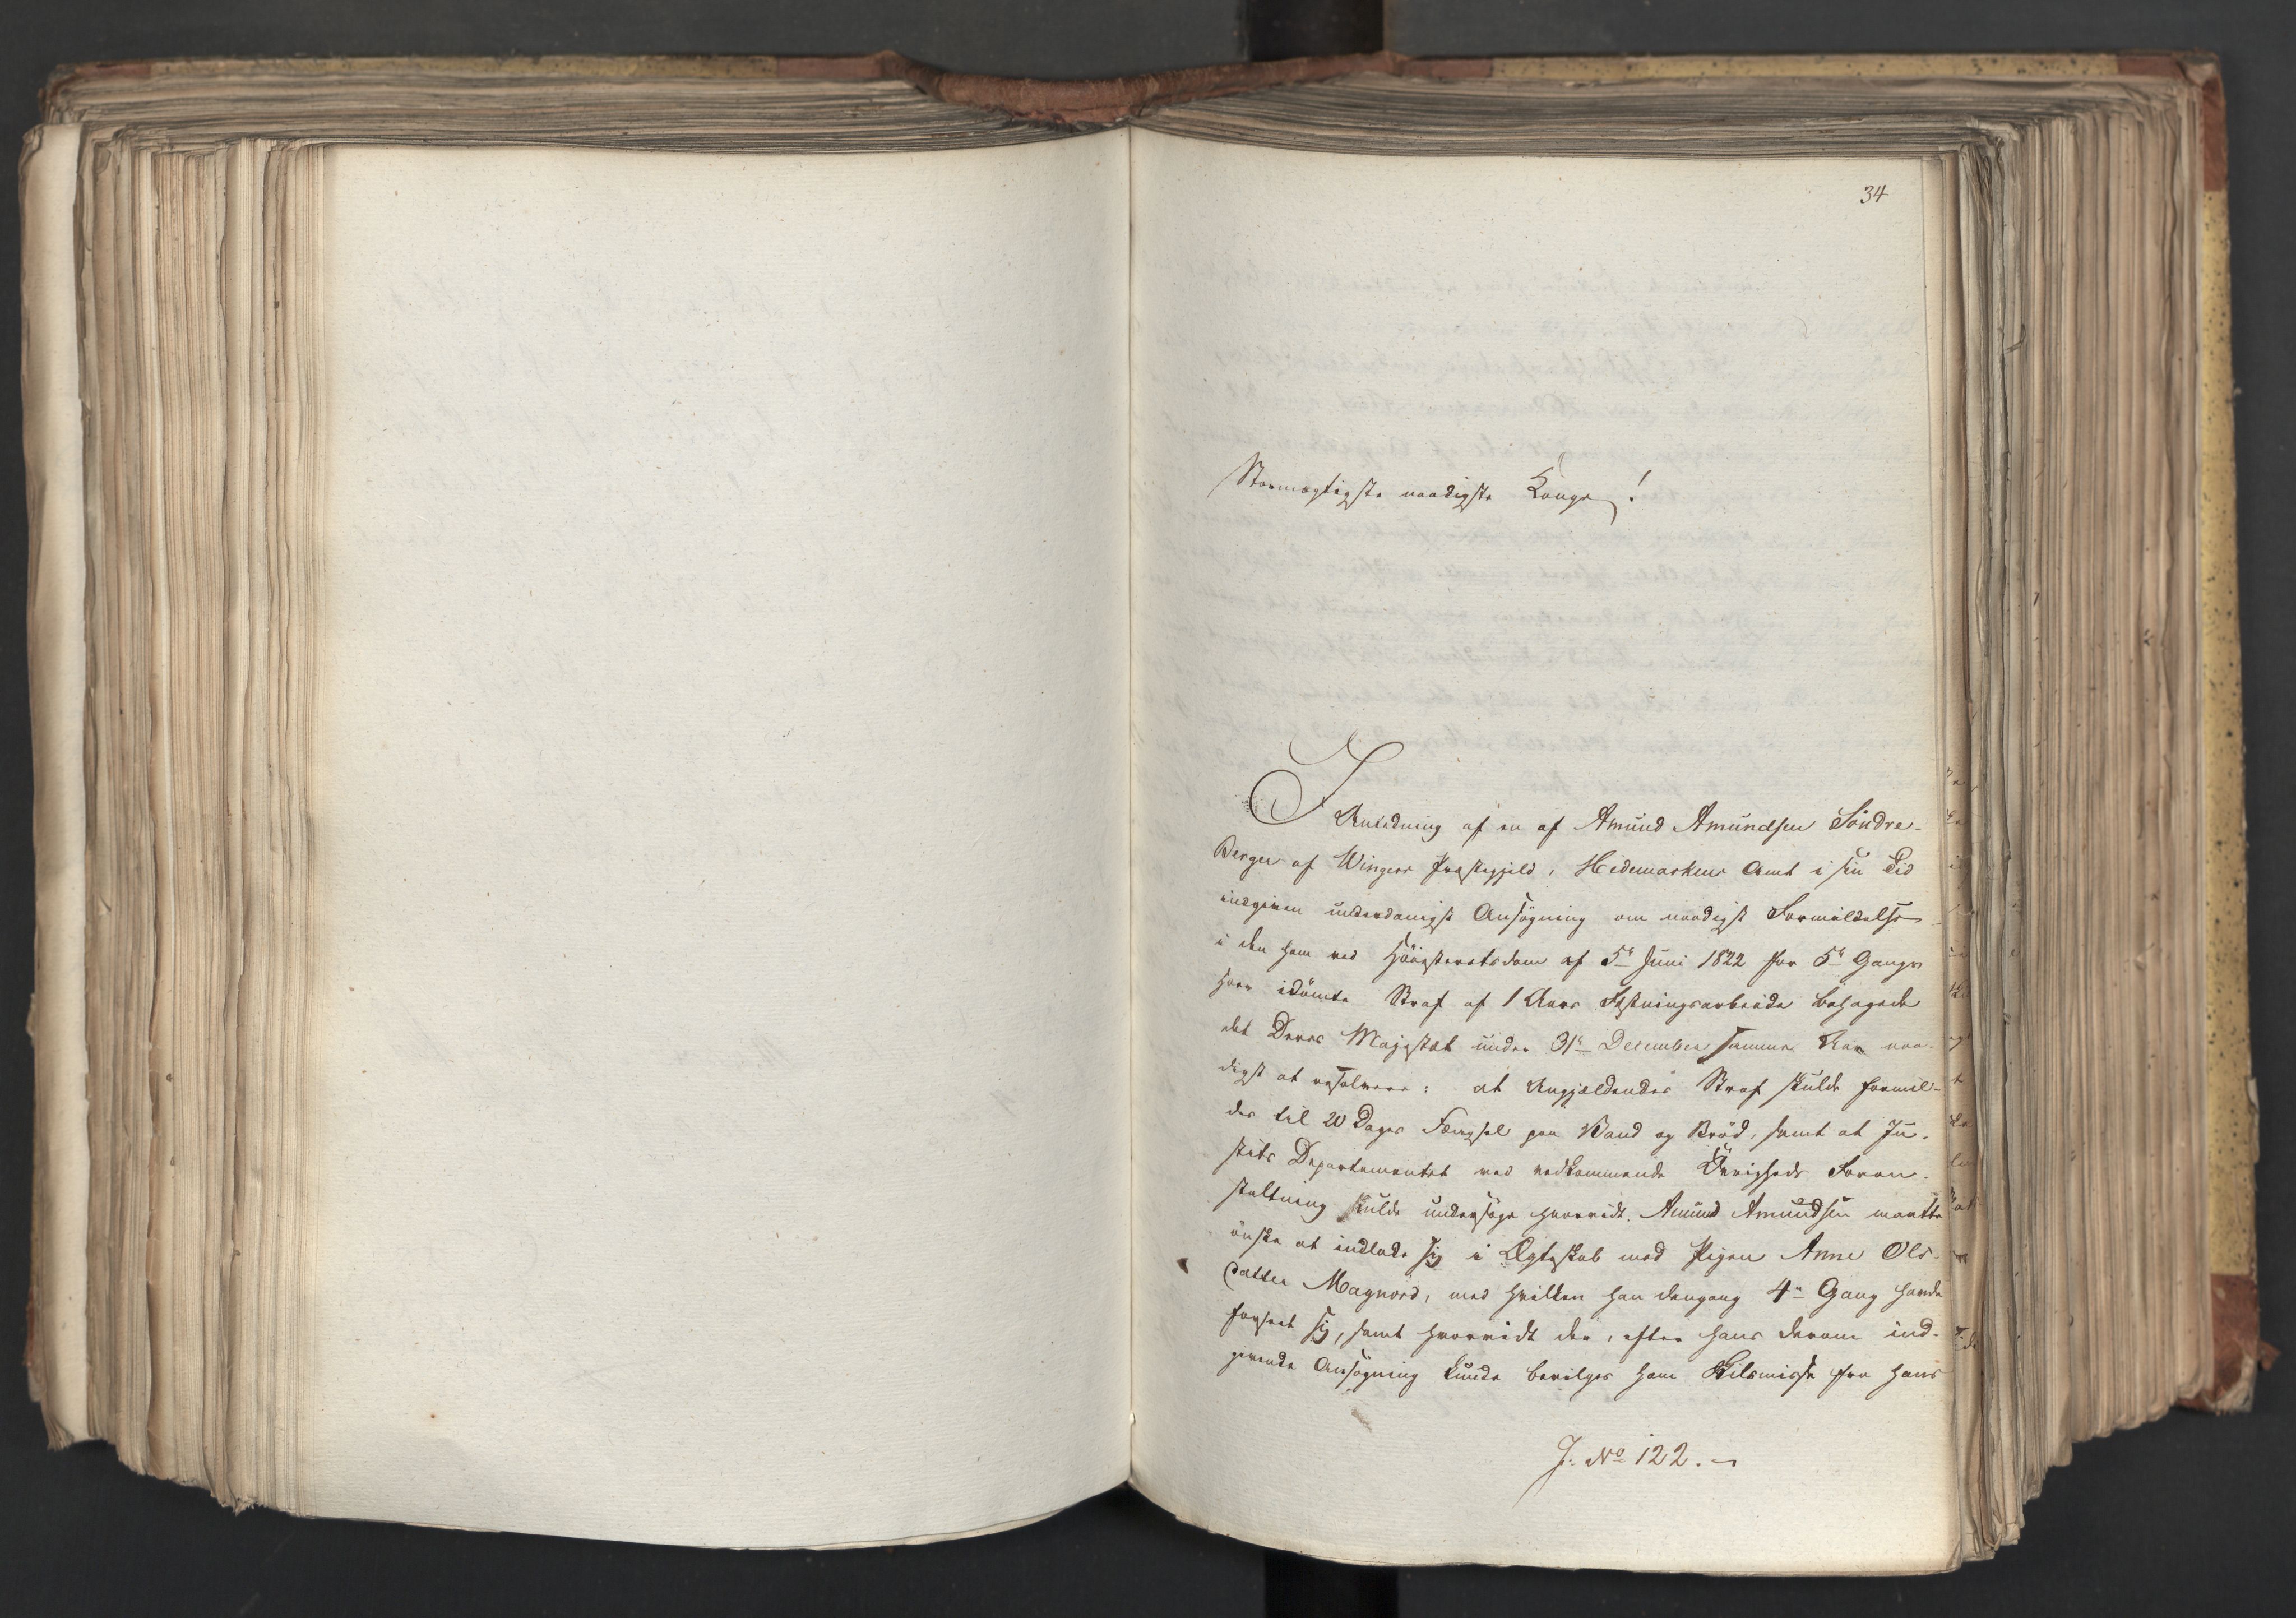 34
Stormægtigste naadigste Konge!
I Anledning af en af Amund Amundsen Söndre-
Berger af Wingers Præstegjeld, Hedemarkens Amt i sin Tid
indgiven underdanigst Ansögning om naadigst Formildelse
i den ham ved Höiesteretsdom af 5te Juni 1822 for 5te Gangs
Hoer idömte Straf af 1 Aars Fæstningsarbeide behagede
det Deres Majestæt under 31te December samme Aar naa-
digst at resolvere: at Angjældendes Straf skulde formil-
des til 20 Dages Fængsel paa Vand og Bröd, samt at Ju-
stits Departementet ved vedkommende Övrigheds Foran-
staltning skulde undersöge hvorvidt Amund Amundsen maatte
önske at indlade sig i Ægteskab med Pigen Anne Ols-
datter Magnord, med hvilken han dengang 4de Gang havde
forseet sig, samt hvorvidt der, efter hans derom ind-
givende Ansögning kunde bevilges ham Skilsmisse fra hans
J. No 122.